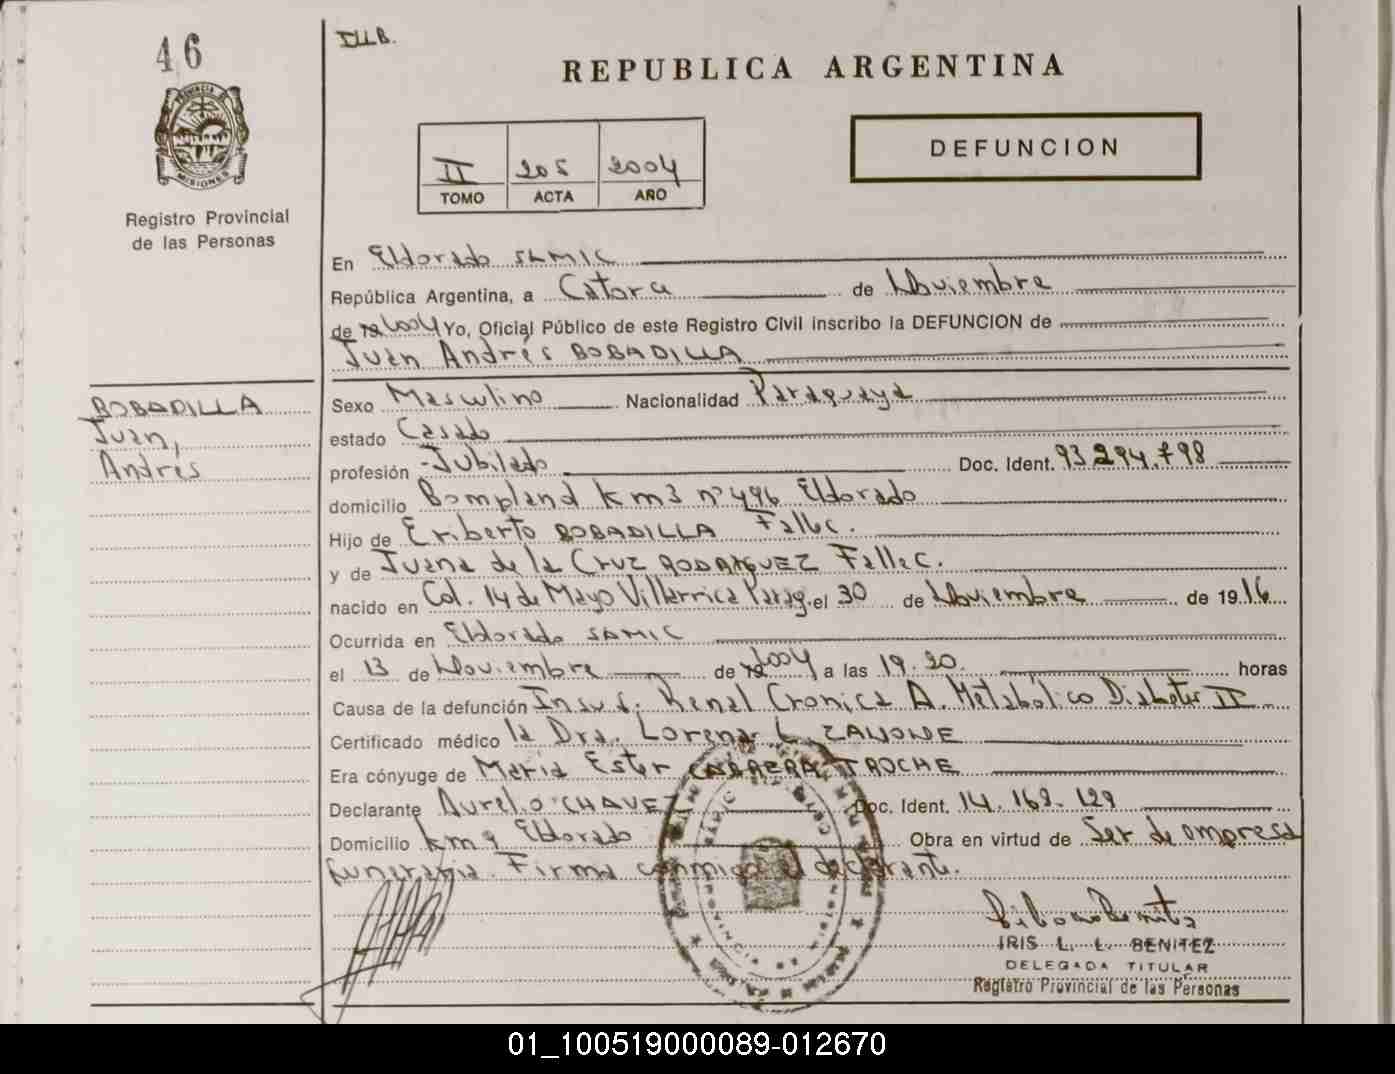 46
I.LL.B.
REPUBLICA ARGENTINA
PROVINCIA DE
MISIONES
Registro Provincial
de las Personas
DEFUNCION
II 205 2004
TOMO ACTA AÑO
En Eldorado SAMIC
República Argentina, a Catorce de Noviembre
de 19 2004 Yo, Oficial Público de este Registro Civil inscribo la DEFUNCION de
Juan Andrés BOBADILLA
BOBADILLA
Juan,
Andrés
Sexo Masculino Nacionalidad Paraguaya
estado Casado
profesión Jubilado Doc. Ident. 93.294.798
domicilio Bompland km3 nº 496 Eldorado
Hijo de Eriberto BOBADILLA Fallec.
y de Juana de la Cruz RODRIGUEZ Fallec.
nacido en Col. 14 de Mayo Villarrica Parag. el 30 de Noviembre de 1916
Ocurrida en Eldorado SAMIC
el 13 de Noviembre de 19 2004 a las 19.20. horas
Causa de la defunción Insuf. Renal Cronica A. Metabólico Diabetes II
Certificado médico la Dra. Lorena L. ZANONE
Era cónyuge de María Ester CABRERA TROCHE
Declarante Aurelio CHAVEZ Doc. Ident. 14.169.129
Domicilio km 9 Eldorado Obra en virtud de Ser de empresa
funeraria. Firma conmigo el declarante.
IRIS L. L. BENITEZ
DELEGADA TITULAR
Registro Provincial de las Personas
01_100519000089-012670